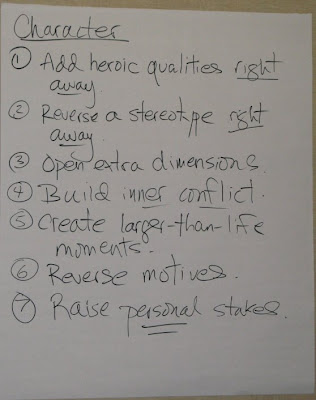 Character
① Add heroic qualities right
away.
② Reverse a stereotype right
away.
③ Open extra dimensions.
④ Build inner conflict.
⑤ Create larger-than-life
moments.
⑥ Reverse motives.
⑦ Raise personal stakes.